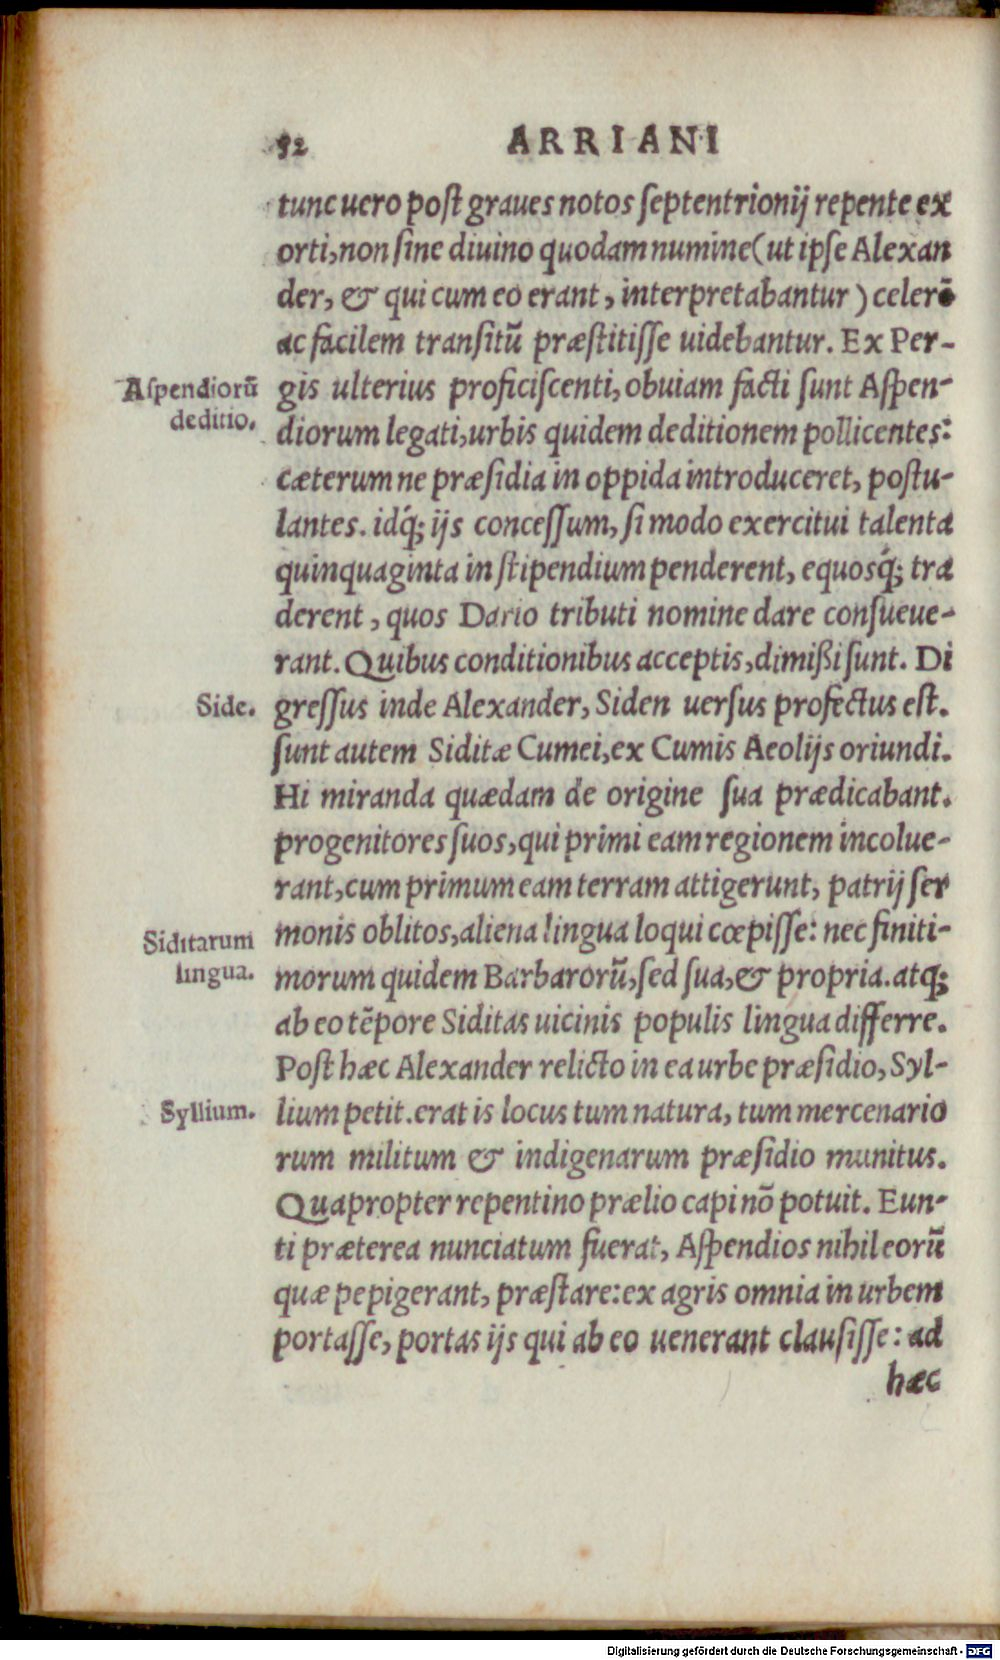 52 ARRIANI
tunc uero post graues notos septentrionij repente ex
orti, non sine diuino quodam numine (ut ipse Alexan
der, & qui cum eo erant, interpretabantur) celerē
ac facilem transitū præstitisse uidebantur. Ex Per-
Aspendiorū
deditio.
gis ulterius proficiscenti, obuiam facti sunt Aspen-
diorum legati, urbis quidem deditionem pollicentes:
cæterum ne præsidia in oppida introduceret, postu-
lantes. idq́; ijs concessum, si modo exercitui talenta
quinquaginta in stipendium penderent, equosq́; tra
derent, quos Dario tributi nomine dare consueue-
rant. Quibus conditionibus acceptis, dimißi sunt. Di
Side.
gressus inde Alexander, Siden uersus profectus est.
sunt autem Siditæ Cumei, ex Cumis Aeolijs oriundi.
Hi miranda quædam de origine sua prædicabant.
progenitores suos, qui primi eam regionem incolue-
rant, cum primum eam terram attigerunt, patrij ser
Siditarum
lingua.
monis oblitos, aliena lingua loqui cœpisse: nec finiti-
morum quidem Barbarorū, sed sua, & propria. atq;
ab eo tēpore Siditas uicinis populis lingua differre.
Post hæc Alexander relicto in ea urbe præsidio, Syl-
Syllium.
lium petit. erat is locus tum natura, tum mercenario
rum militum & indigenarum præsidio munitus.
Quapropter repentino prælio capi nō potuit. Eun-
ti præterea nunciatum fuerat, Aspendios nihil eorū
quæ pepigerant, præstare: ex agris omnia in urbem
portasse, portas ijs qui ab eo uenerant clausisse: ad
hæc
Digitalisierung gefördert durch die Deutsche Forschungsgemeinschaft - DFG